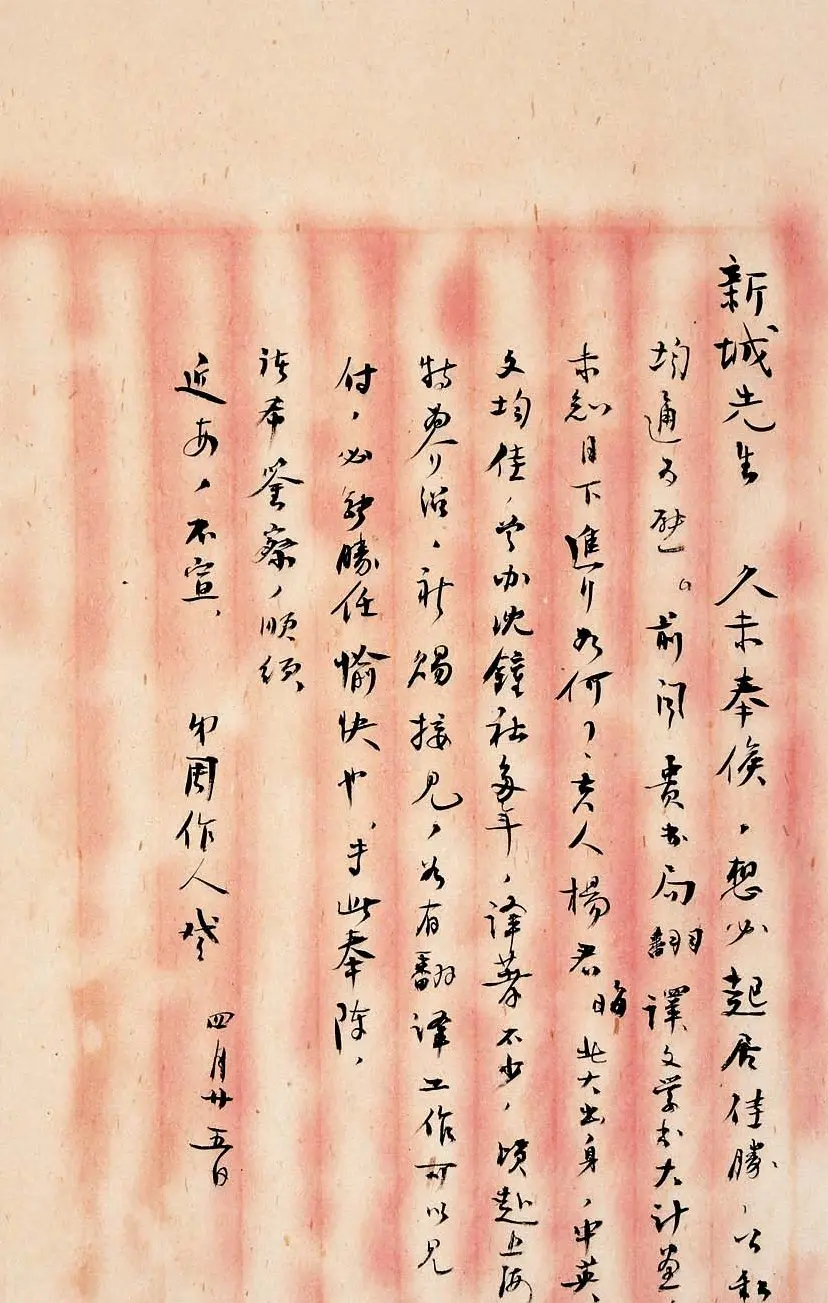 新城先生 久未奉候，想必起居佳勝，公私
均通為慰。前聞貴書局翻譯文學書大計畫，
未知目下進行如何？友人楊君晦北大出身，中英
文均佳，曾办沈鐘社多年，譯著不少，頃赴上海
特為介绍，祈賜接見，如有翻譯工作可以見
付，必能勝任愉快也，專此奉陳，
諸希鉴察，順頌
近安，不宣。
弟周作人啓 四月廿五日